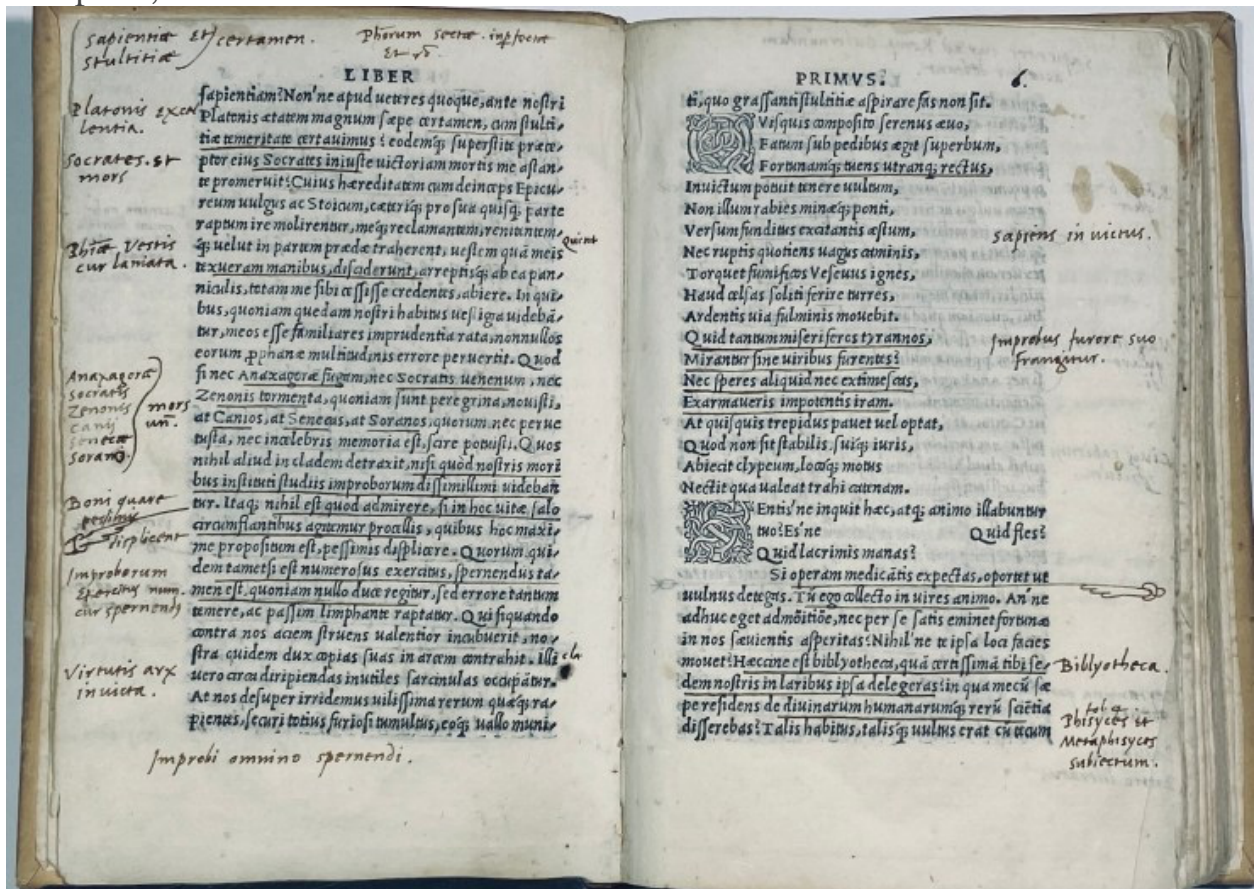 Sapientiæ Et certamen.
Stultitiæ
LIBER
Platonis
lentia.
Socratis. Et
mors
Vestis
cur laniata.
Anaxagoræ
Socratis
Zenonis
Canii
Senecæ
Sorani
mors
Boni quare
pessimis
displicent
Improborum
Exercitus
cur spernendus
Virtutis arx
invicta.
sapientiam? Non'ne apud ueteres quoque, ante nostri
Platonis ætatem magnum sæpe certamen, cum stulti,
tiæ temeritate certauimus? eodemq; superstite præce,
ptor eius Socrates iniuste uictoriam mortis me astan,
te promeruit? Cuius hæreditatem cum deinceps Epicu,
reum uulgus ac Stoicum, cæteriq; pro sua quisq; parte
raptum ire molirentur, meq; reclamantem, renitentem,
q; uelut in partem prædæ traherent, uestem quã meis
texueram manibus, disciderunt, arreptisq; ab ea pan,
niculis, totam me sibi cessisse credentes, abiere. In qui,
bus, quoniam quedam nostri habitus uestigia uidebã,
tur, meos esse familiares imprudentia rata, nonnullos
eorum ꝓphanæ multitudinis errore peruertit. Quod
si nec Anaxagoræ fugam, nec Socratis uenenum, nec
Zenonis tormenta, quoniam sunt peregrina, nouisti,
at Canios, at Senecas, at Soranos, quorum nec perue
tusta, nec incelebris memoria est, scire potuisti. Quos
nihil aliud in cladem detraxit, nisi quòd nostris mori
bus instituti studiis improborum dissimillimi uidebant
tur. Itaq; nihil est quod admirere, si in hoc uitæ salo
circumflantibus agitemur procellis, quibus hoc maxi,
me propositum est, pessimis displicere. Quorum qui,
dem tametsi est numerosus exercitus, spernendus ta,
men est, quoniam nullo duce regitur, sed errore tantum
temere, ac passim limphante raptatur. Qui siquando
contra nos aciem struens ualentior incubuerit, no,
stra quidem dux copias suas in arcem contrahit. Illi
uero circa diripiendas inutiles sarcinulas occupãtur.
At nos desuper irridemus uilissima rerum quæq; ra,
pientes, securi totius furiosi tumultus, eoq; uallo muni,
Improbi omnino spernendi.
PRIMVS.
6.
ti, quo grassanti stultitiæ aspirare fas non sit.
QVisquis composito serenus æuo,
Fatum sub pedibus ægit superbum,
Fortunamq; tuens utranq; rectus,
Inuictum potuit tenere uultum,
Non illum rabies minæq; ponti,
Versum funditus excitantis æstum,
Nec ruptis quotiens uagus caminis,
Torquet fumificos Veseuus ignes,
Haud celsas soliti ferire turres,
Ardentis uia fulminis mouebit.
Quid tantum miseri feros tyrannos,
Mirantur sine uiribus furentes?
Nec speres aliquid nec extimescas,
Exarmaueris impotentis iram.
At quisquis trepidus pauet uel optat,
Quod non sit stabilis. suiq; iuris,
Abiecit clypeum, locoq; motus
Nectit qua ualeat trahi catenam.
SEntis'ne inquit hæc, atq; animo illabuntur
tuo? Es'ne Quid fles?
Quid lacrimis manas?
Si operam medicãtis expectas, oportet ut
uulnus detegas. Tũ ego collecto in uires animo. An'ne
adhuc eget admõitiõe, nec per se satis eminet fortunæ
in nos sæuientis asperitas? Nihil'ne te ipsa loci facies
mouet? Hæccine est biblyotheca, quã certissimã tibi se,
dem nostris in laribus ipsa delegeras? in qua mecũ sæ
pe residens de diuinarum humanarumq; rerũ sciẽtia
disserebas? Talis habitus, talisq; uultus erat cũ tecum
Sapiens invictus.
Improbus furore suo
frangitur.
Biblyotheca.
Phisyces Et
Metaphisyces
subiectum.